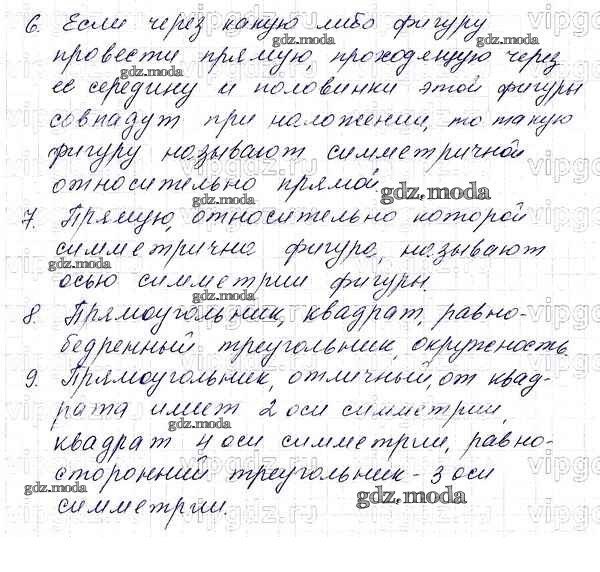 6. Если через какую либо фигуру
провести прямую, проходящую через
её середину и половинки этой фигуры
совпадут при наложении, то такую
фигуру называют симметричной
относительно прямой.
7. Прямую, относительно которой
симметрична фигура, называют
осью симметрии фигуры.
8. Прямоугольник, квадрат, равно-
бедренный треугольник, окружность.
9. Прямоугольник, отличный от квад-
рата имеет 2 оси симметрии,
квадрат 4 оси симметрии, равно-
сторонний треугольник - 3 оси
симметрии.
gdz.moda
vipgdz.ru